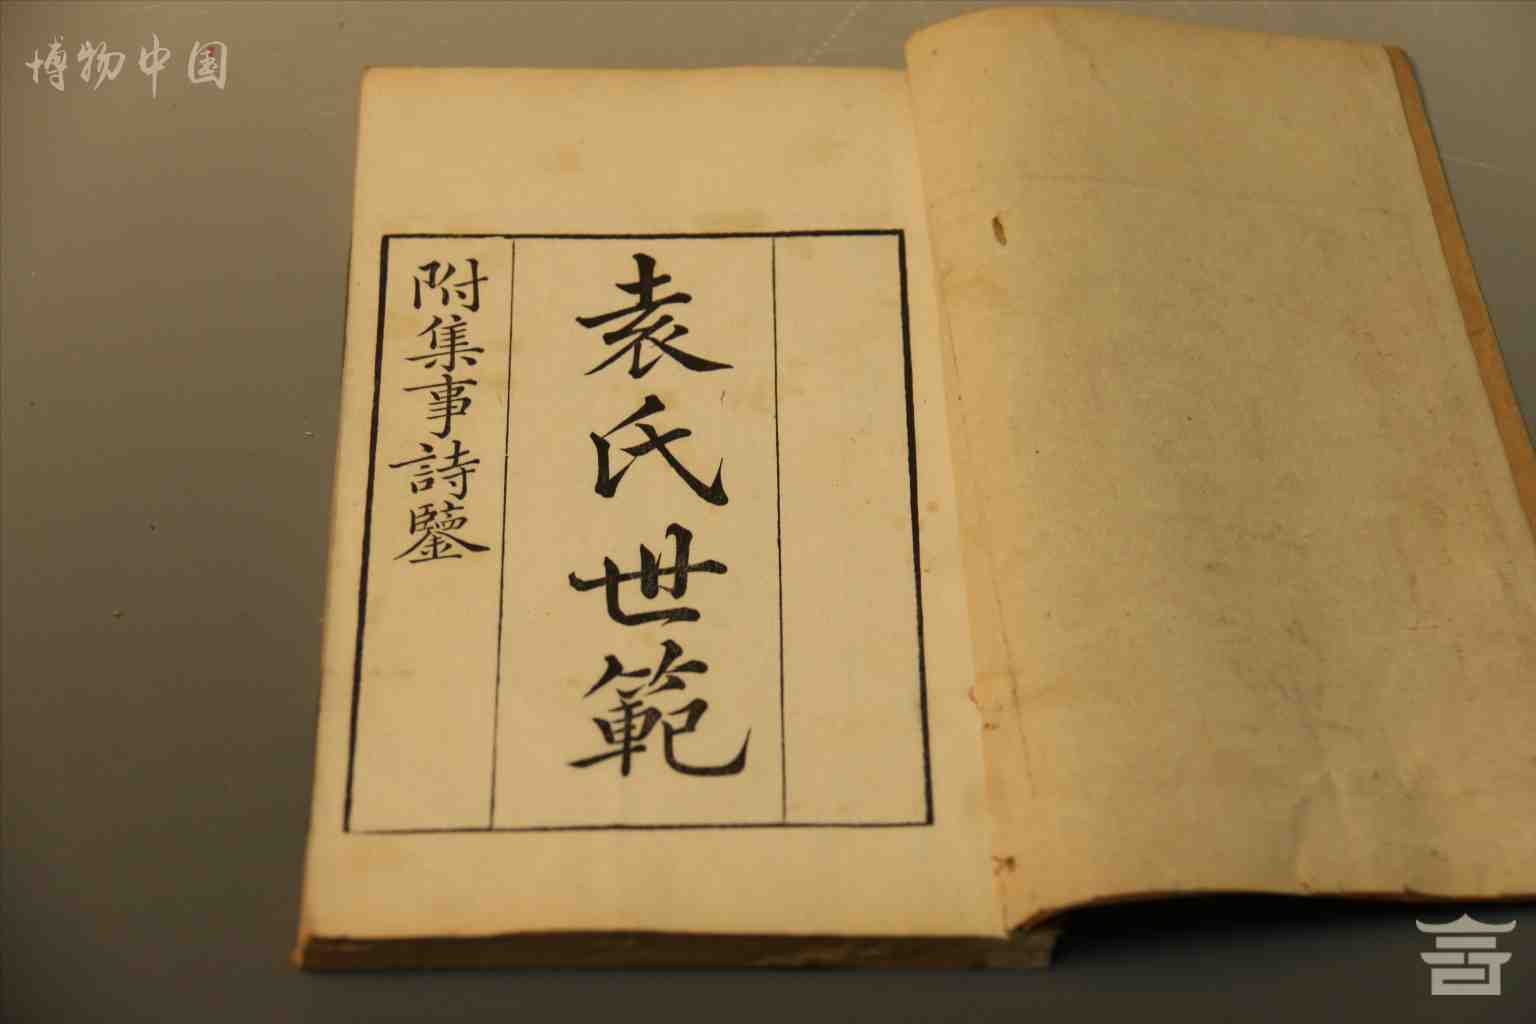 博物中国
袁氏世範
附集事詩鑒